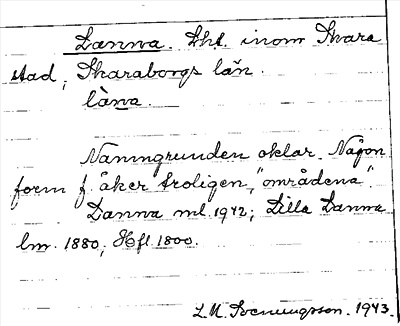 Lanna. Lht. inom Skara
stad, Skaraborgs län.
làna.
Namngrunden oklar. Någon
form f. åker troligen, "områdena".
Lanna ml. 1942; Lilla Lanna
lm. 1880, Hfl 1800.
L.M. Svenungsson. 1943.